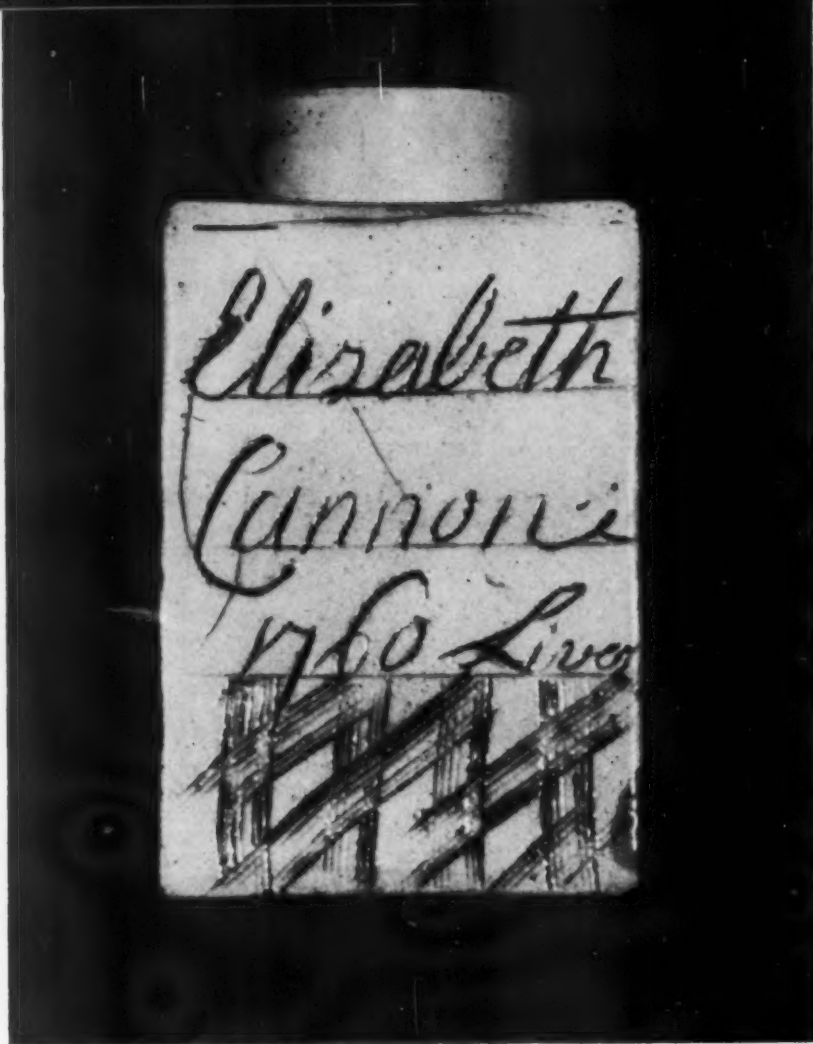 Elizabeth
Cannon
1760 Liver